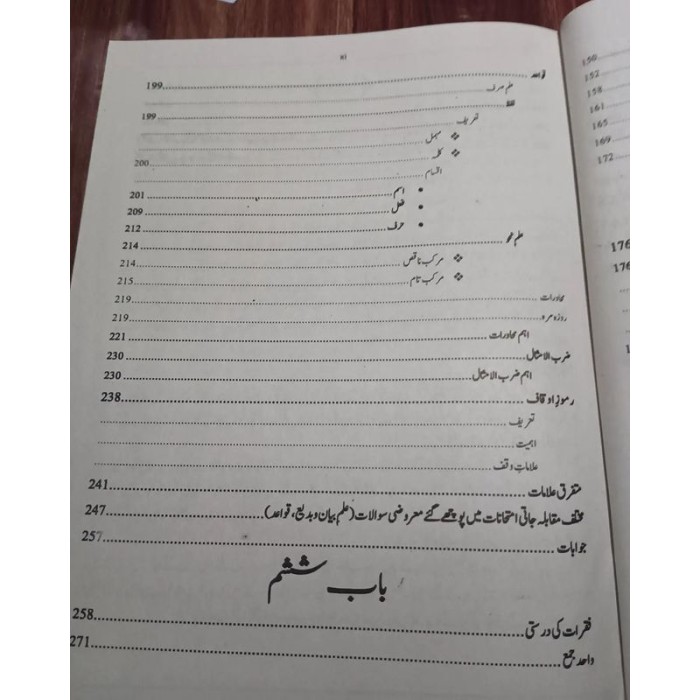 xi
قواعد ... 199
علم صرف
لفظ ... 199
تعریف
❖ مہمل
❖ کلمہ ... 200
اقسام
• اسم ... 201
• فعل ... 209
• حرف ... 212
علم نحو ... 214
❖ مرکب ناقص ... 214
❖ مرکب تام ... 215
محاورات ... 219
روزہ مرہ ... 219
اہم محاورات ... 221
ضرب الامثال ... 230
اہم ضرب الامثال ... 230
رموزِ اوقاف ... 238
تعریف
اہمیت
علامات وقف
متفرق علامات ... 241
مختلف مقابلہ جاتی امتحانات میں پوچھے گئے معروضی سوالات (علم بیان و بدیع، قواعد) ... 247
جوابات ... 257
باب ششم
فقرات کی درستی ... 258
واحد جمع ... 271
150
152
158
161
165
169
172
176
176